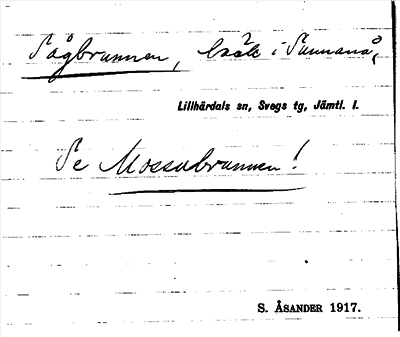 Sågbrunnen, bäck i Sunnanå,
Lillhärdals sn, Svegs tg, Jämtl. l.
Se Mossubrunnen!
S. ÅSANDER 1917.